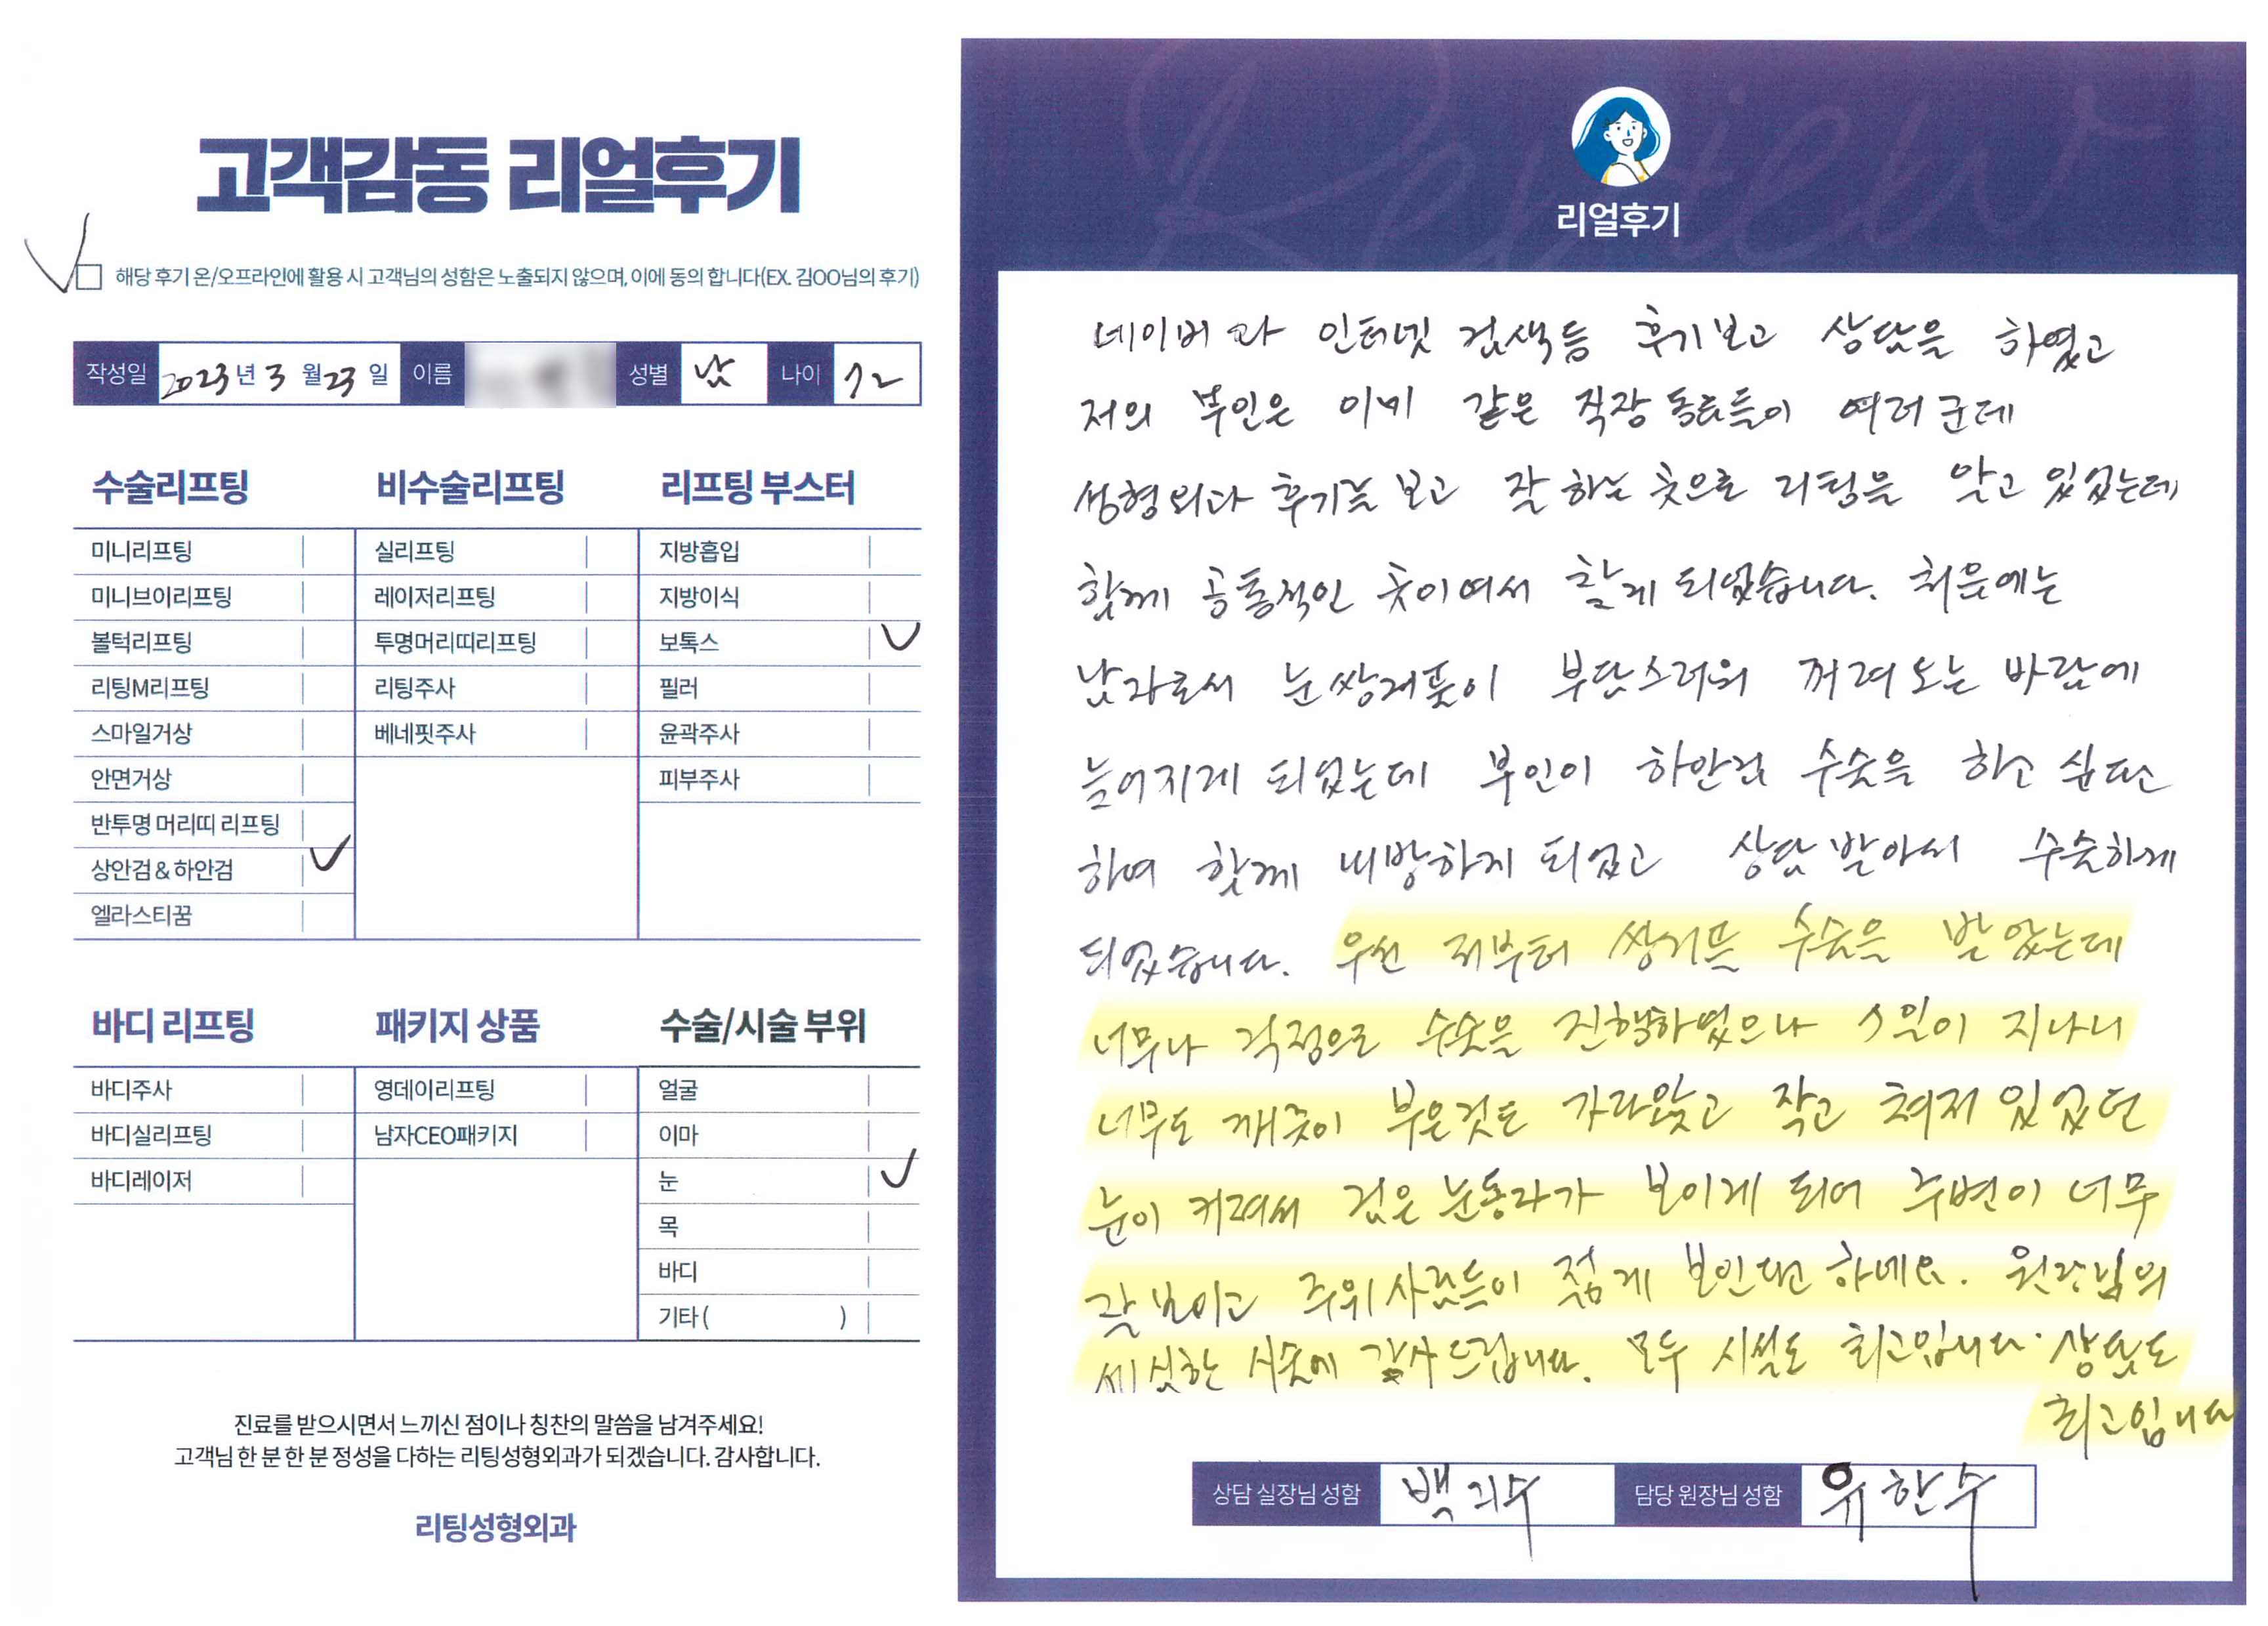 고객감동 리얼후기
해당 후기 온/오프라인에 활용 시 고객님의 성함은 노출되지 않으며, 이에 동의 합니다(EX. 김OO님의 후기)
작성일 2023년 3월 23일 이름 성별 남 나이 72
수술리프팅
미니리프팅
미니브이리프팅
볼턱리프팅
리팅M리프팅
스마일거상
안면거상
반투명 머리띠 리프팅
상안검 & 하안검
엘라스티꿈
비수술리프팅
실리프팅
레이저리프팅
투명머리띠리프팅
리팅주사
베네핏주사
리프팅 부스터
지방흡입
지방이식
보톡스
필러
윤곽주사
피부주사
바디 리프팅
바디주사
바디실리프팅
바디레이저
패키지 상품
영데이리프팅
남자CEO패키지
수술/시술 부위
얼굴
이마
눈
목
바디
기타( )
진료를 받으시면서 느끼신 점이나 칭찬의 말씀을 남겨주세요!
고객님 한 분 한 분 정성을 다하는 리팅성형외과가 되겠습니다. 감사합니다.
리팅성형외과
Review
리얼후기
네이버과 인터넷 검색등 후기보고 상담을 하였고
저의 부인은 이미 같은 직장 동료들이 여러군데
성형외과 후기를 보고 잘 하는 곳으로 리팅을 알고 있었는데
함께 공통적인 곳이여서 찾게 되었습니다. 처음에는
남자로서 눈쌍커풀이 부담스러워 꺼려 오는 바람에
늦어지게 되었는데 부인이 하안검 수술을 하고 싶다고
하여 함께 내방하게 되었고 상담 받아서 수술하게
되었습니다. 우선 저부터 쌍커플 수술을 받았는데
너무나 걱정으로 수술을 진행하였으나 5일이 지나니
너무도 깨끗이 부은것도 가라앉고 작고 쳐져 있었던
눈이 커져서 검은 눈동자가 보이게 되어 주변이 너무
잘 보이고 주위 사람들이 젊게 보인다고 하네요. 원장님의
세심한 시술에 감사드립니다. 모두 시설도 최고입니다. 상담도
최고입니다
상담 실장님 성함 백지수 담당 원장님 성함 유한수